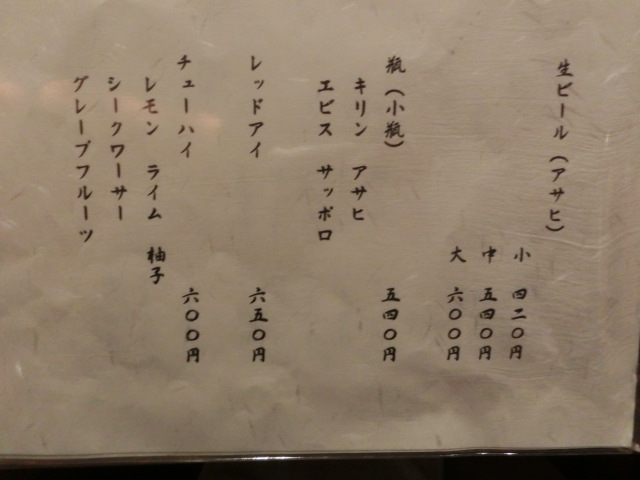 生ビール(アサヒ)
小 四二〇円
中 五四〇円
大 六〇〇円
瓶(小瓶) 五四〇円
キリン アサヒ
エビス サッポロ
レッドアイ 六五〇円
チューハイ 六〇〇円
レモン ライム 柚子
シークワーサー
グレープフルーツ